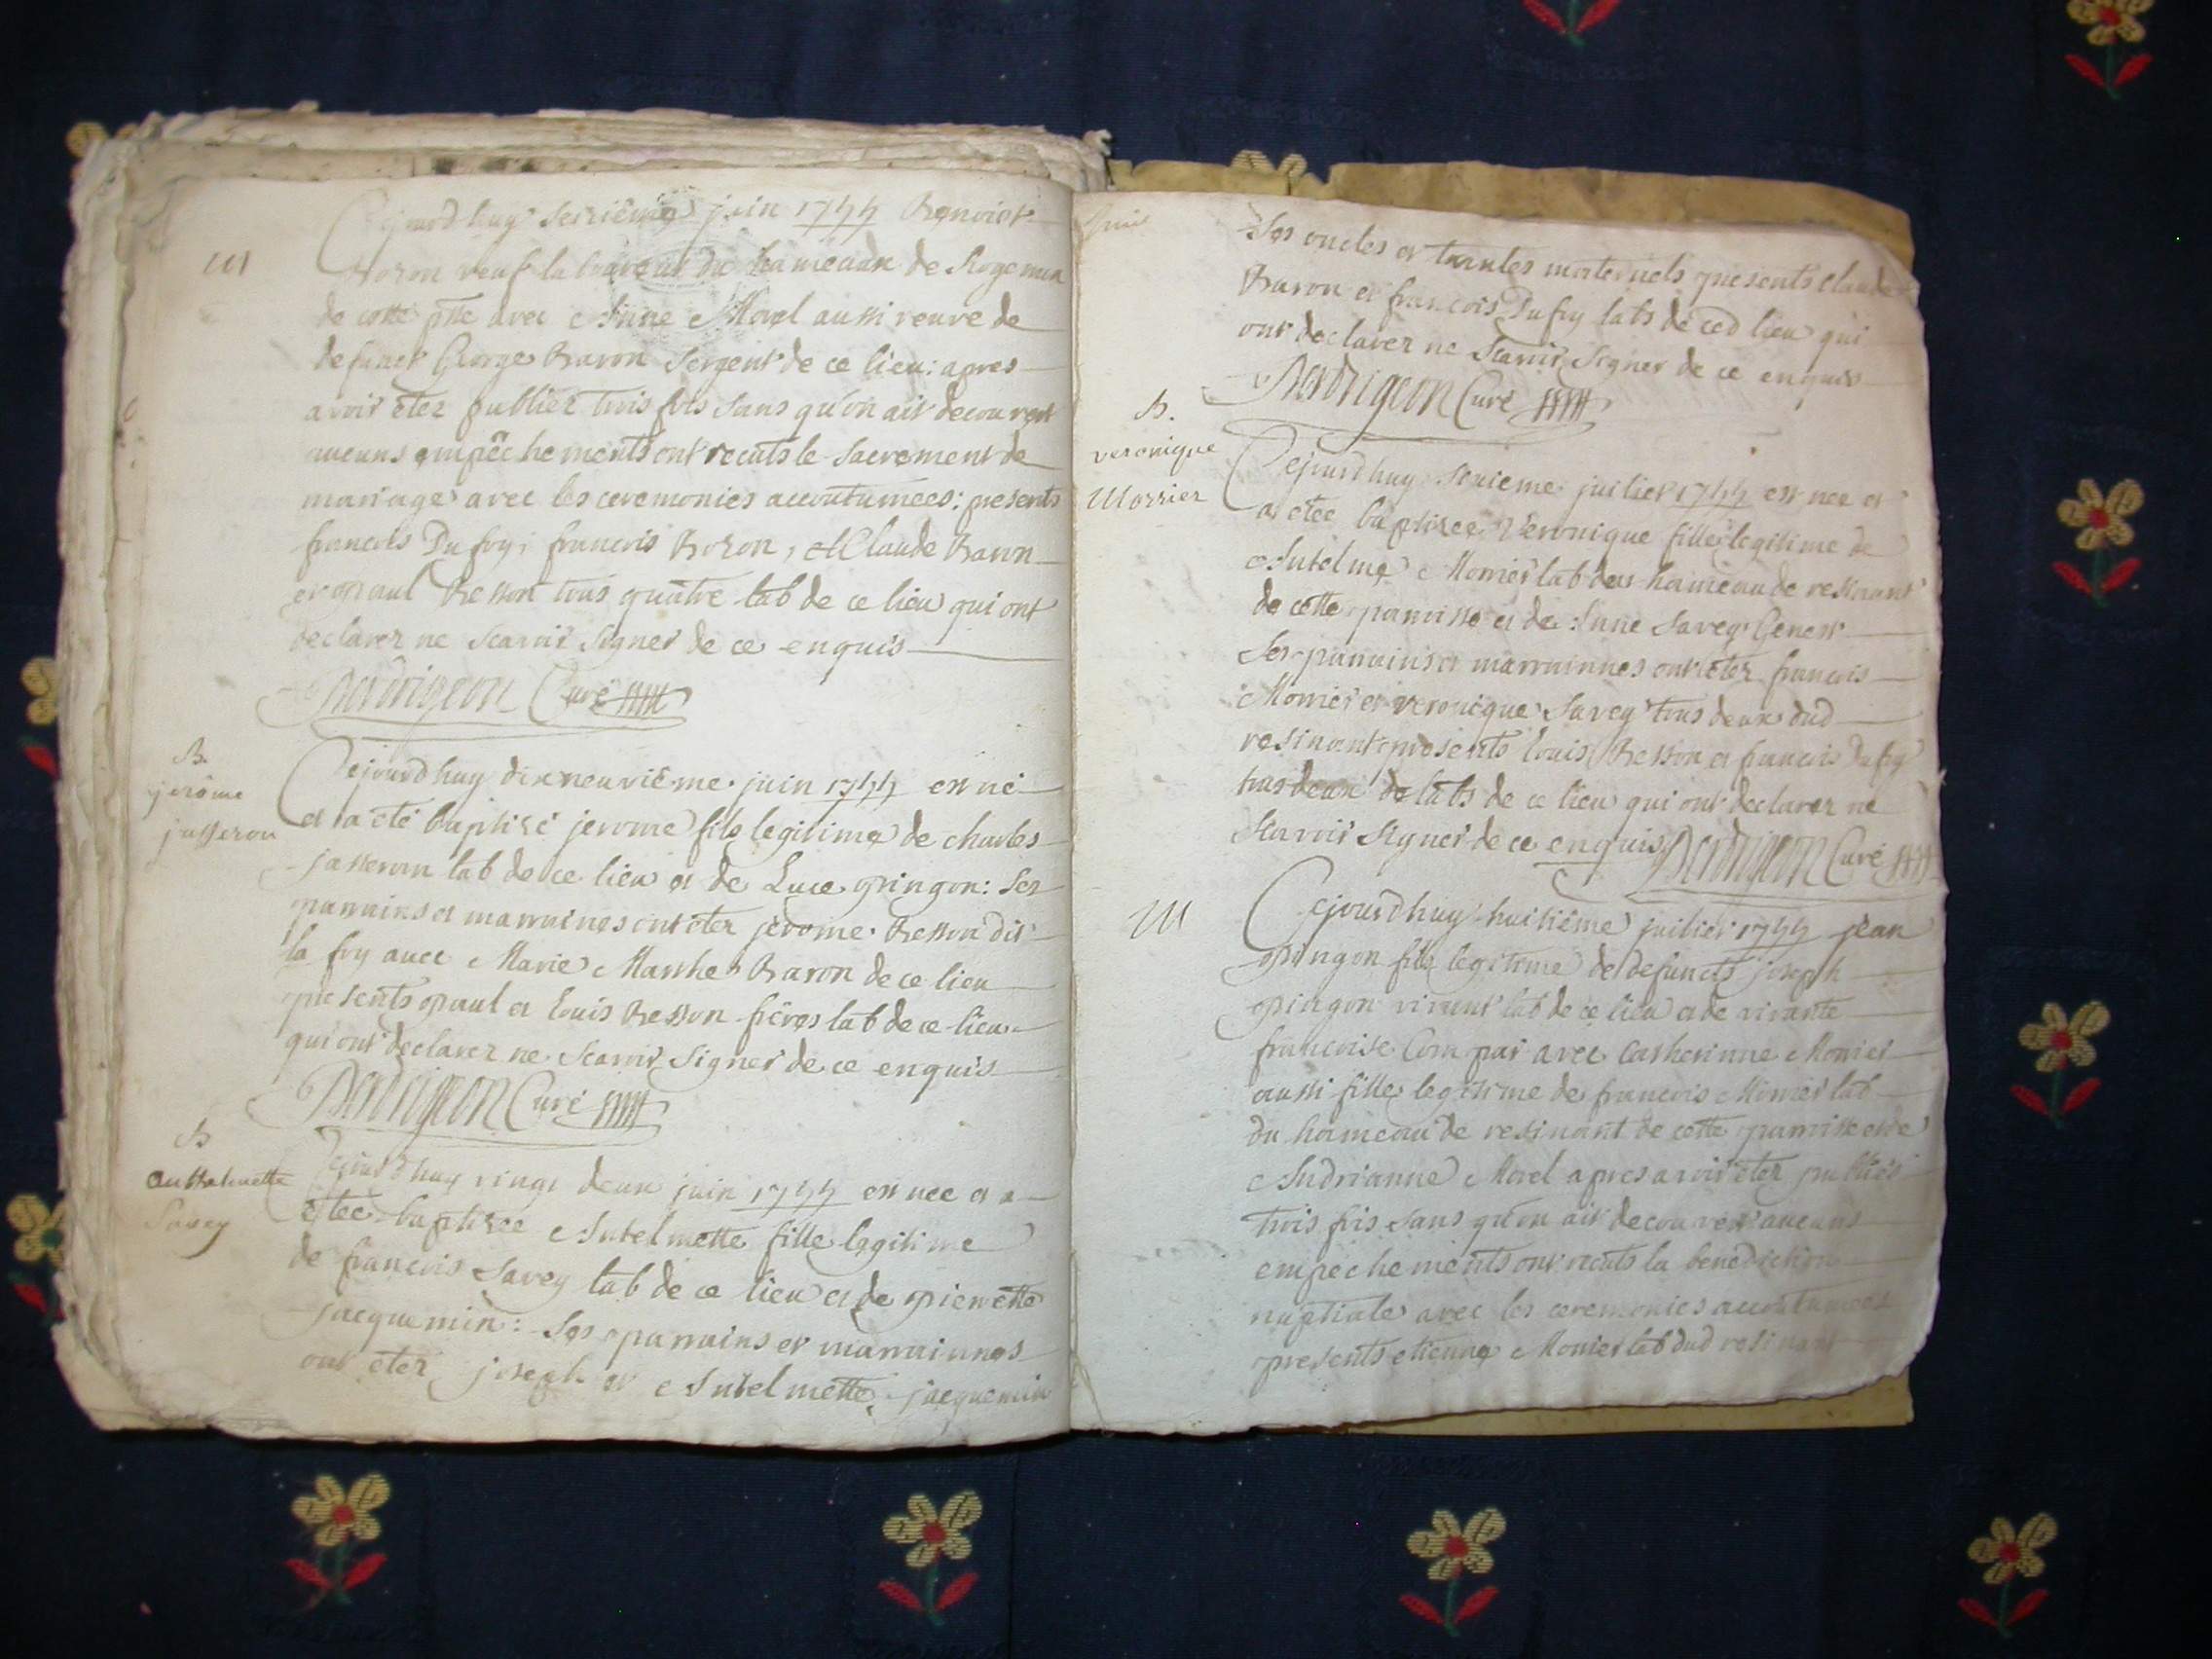 M
Cejourdhuy seizième juin 1744 Benoist
veuf laboureur du hameau de
de cette psse avec Anne Morel aussi veuve de
defunct George Baron Sergent de ce lieu: apres
avoir eter publiez trois fois sans qu'on ait decouvert
aucuns empêchements ont recuts le Sacrement de
mariage avec les ceremonies accoutumees: presents
francois Dufoy, francois Bozon, Claude Baron
et paul Besson tous quatre lab de ce lieu qui ont
declarer ne Scavoir Signer de ce enquis
Curé
B.
jerôme
jasseron
Cejourdhuy dix neuvième juin 1744 est né
et a eté baptisé jerome fils legitime de charles
jasseron lab de ce lieu et de Luce pingon: Ses
parrains et marraines ont eter jerome Besson dit
la foy avec Marie Marthe Baron de ce lieu
presents paul et louis Besson frères lab de ce lieu
qui ont declarer ne Scavoir Signer de ce enquis
Curé
B
Savey
Cejourdhuy vingt deux juin 1744 est nee et a
etee baptisée Antelmette fille legitime
de francois Savey lab de ce lieu et de pierrette
jacquemin: Ses parrains et marrainnes
ont eter joseph et Antelmette jacquemin
Ses oncles et tantes maternels presents claude
Baron et francois Dufoy labs de ced lieu qui
ont declarer ne Scavoir Signer de ce enquis
Curé
B.
veronique
Morrier
Cejourdhuy juilier 1744 est nee et
a etee baptisee Veronique fille legitime de
Antelme Monier lab du hameau de
de cette parroisse et de Anne Savey Genest
Ses parrains et marrainnes ont eter francois
Monier et veronique Savey tous deux dud
resinant presents louis Besson et francois Dufoy
tous deux labs de ce lieu qui ont declarer ne
Scavoir Signer de ce enquis Curé
M
Cejourdhuy huitième juilier 1744 jean
pingon fils legitime de defuncts joseph
pingon vivant lab de ce lieu et de vivante
francoise avec Catherinne Monier
aussi fille legitime de francois Monier lab
du hameau de resinant de cette parroisse et de
Andrianne Morel apres avoir eter publiés
trois fois sans qu'on ait decouvert aucuns
empechements ont recuts la benediction
nuptiale avec les ceremonies accoutumees
presents etienne Monier lab dud resinant